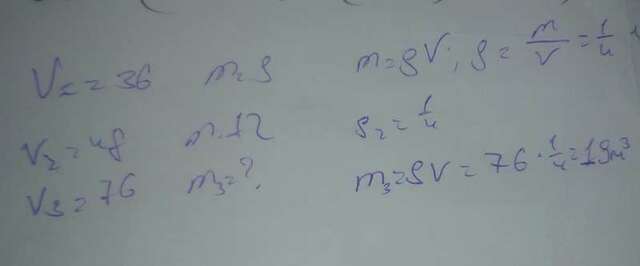 V₁ = 36 m = 9 m = ρV; ρ = m/V = 1/4
V₂ = 48 m = 12 ρ₂ = 1/4
V₃ = 76 m₃ = ? m₃ = ρV = 76 · 1/4 = 19 м³